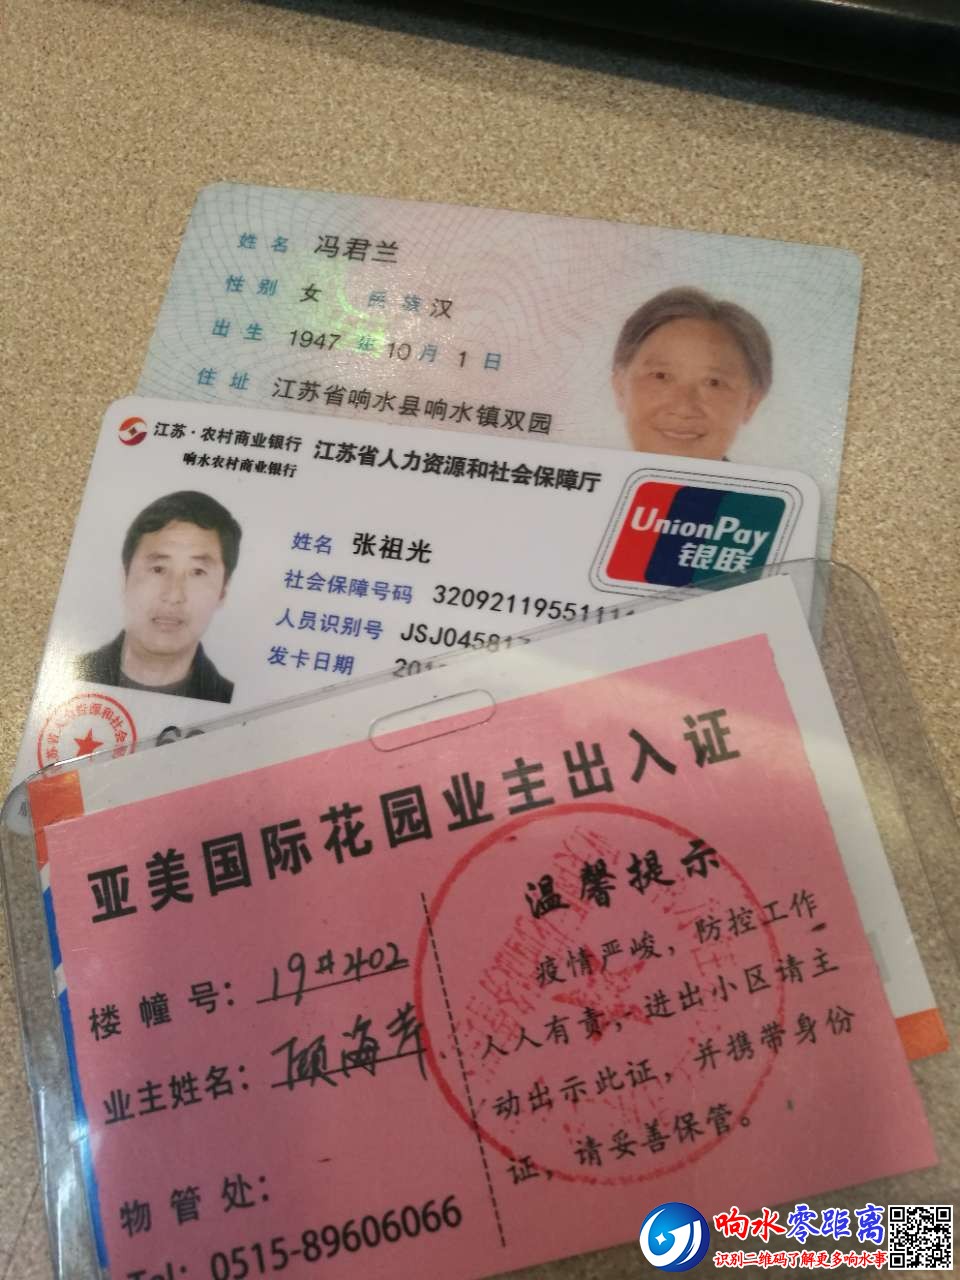 姓名 冯君兰
性别 女 民族 汉
出生 1947 年 10 月 1 日
住址 江苏省响水县响水镇双园
江苏·农村商业银行 江苏省人力资源和社会保障厅
响水农村商业银行
UnionPay
银联
姓名 张祖光
社会保障号码 32092119551111
人员识别号 JSJ04581
发卡日期 201
亚美国际花园业主出入证
楼幢号：19#402
业主姓名：顾海
物管处：
Tel：0515-89606066
温馨提示
疫情严峻，防控工作
人人有责，进出小区请主
动出示此证，并携带身份
证，请妥善保管。
响水零距离
识别二维码了解更多响水事